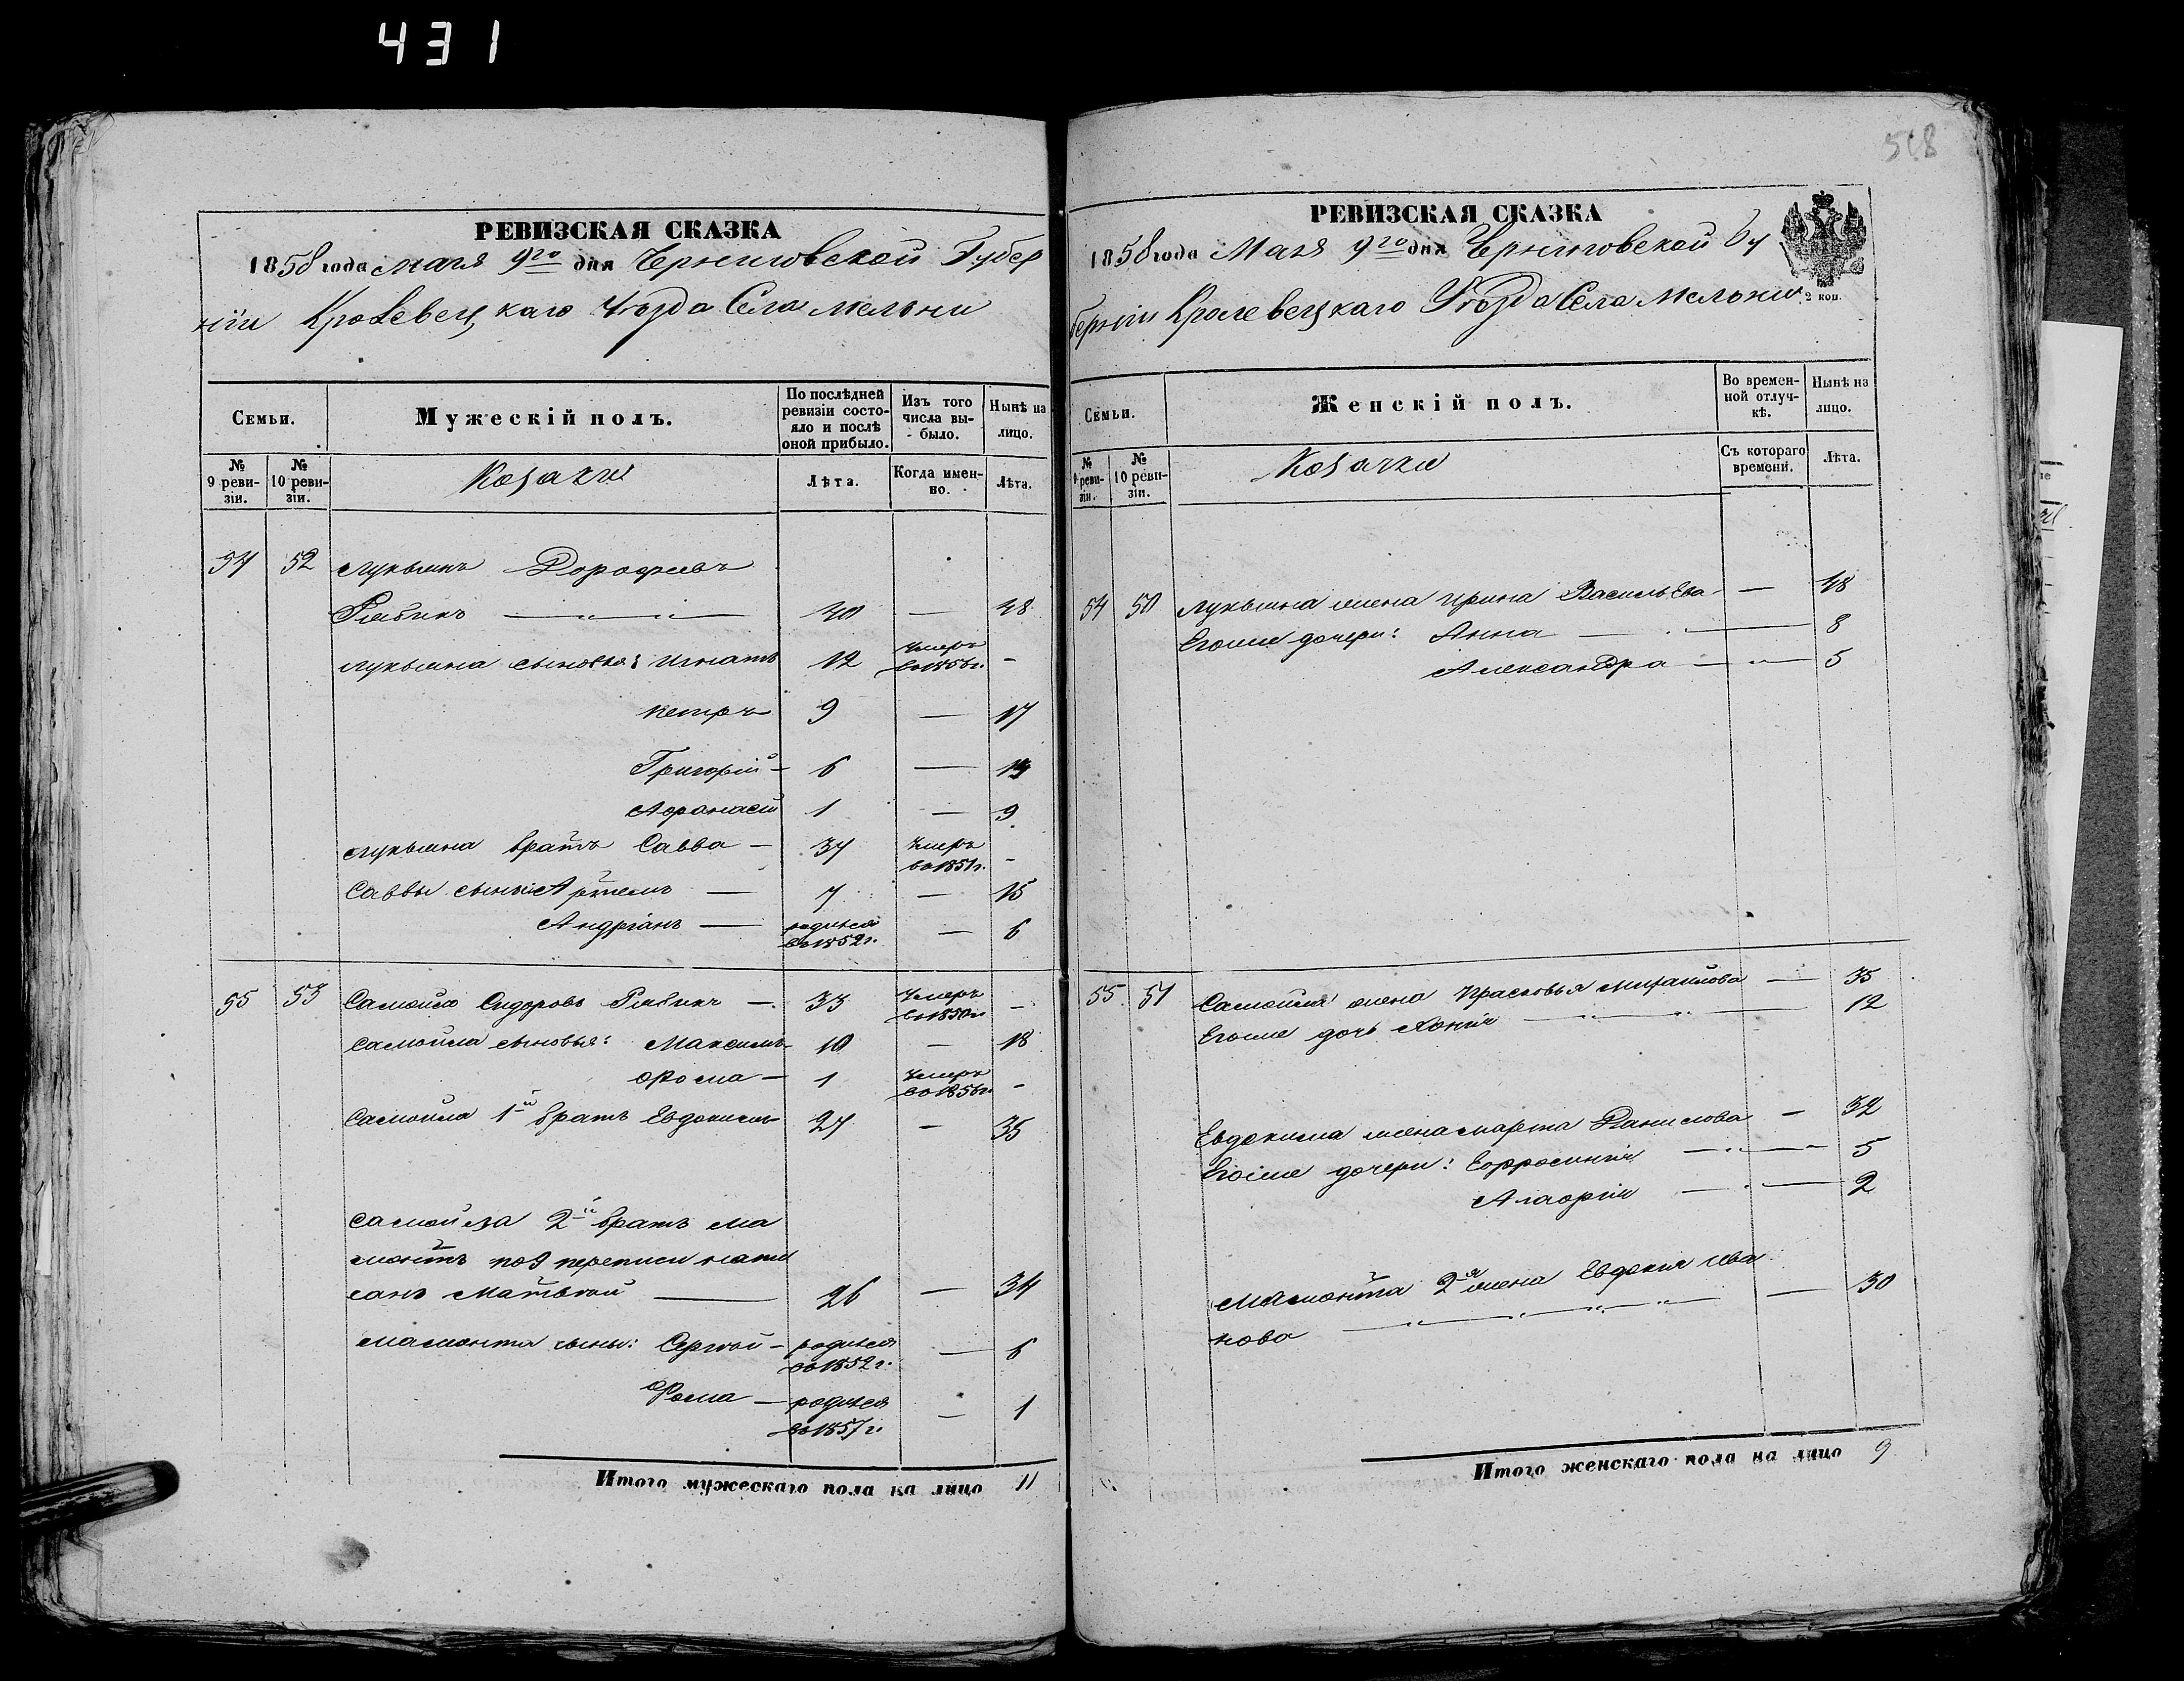 431
РЕВИЗСКАЯ СКАЗКА
1858 года мая 9го дня Черниговской Губер
нїи Кролевецкаго Уѣзда Села Мельни
Семьи.
Мужескій полъ.
По послѣдней ревизіи состояло и послѣ оной прибыло.
Изъ того числа выбыло.
Нынѣ на лицо.
№ 9 ревизіи.
№ 10 ревизіи.
Козаки
Лѣта.
Когда именно.
Лѣта.
54 52 Лукьянъ Дорофѣевъ
40 — 48
Лукьяна сыновья: Игнатъ 12 Умеръ —
Петръ 9 — 17
Григорій — 6 — 14
Афанасій 1 — 9
Лукьяна братъ Савва — 37 Умеръ во 1851 г. —
Саввы сыны: Артемъ — 7 — 15
Андріанъ — родился во 1852 г. — 6
55 53 Самойло Сидоровъ — 33 Умеръ во 1850 г. —
Самойла сыновья: Максимъ — 10 — 18
Фома — 1 Умеръ во 1856 г. —
Самойла 1й братъ Евдокимъ 27 — 35
Самойла 2й братъ Ма
монтъ по 9 переписи напи
санъ Матвѣй — 26 — 34
Мамонта сыны: Сергѣй — родился во 1852 г. — 6
Фома — родился во 1857 г. — 1
Итого мужескаго пола на лицо 11
518
РЕВИЗСКАЯ СКАЗКА
1858 года Мая 9го дня Черниговской Гу
берніи Кролевецкаго Уѣзда Села Мельни
2 коп.
Семьи.
Женскій полъ.
Во временной отлучкѣ.
Нынѣ на лицо.
№ 9 ревизіи.
№ 10 ревизіи.
Козачки
Съ котораго времени.
Лѣта.
54 50 Лукьяна жена Ирина Васильева — 48
Егоже дочери: Анна — 8
Александра — 5
55. 51 Самойла жена Прасковья Михайлова — 35
Егоже дочь — 12
Евдокима жена Марфа Данилова — 32
Егоже дочери: Ефросинія — 5
— 2
Мамонта 2я жена Евдокія Ива
нова — 30
Итого женскаго пола на лицо 9